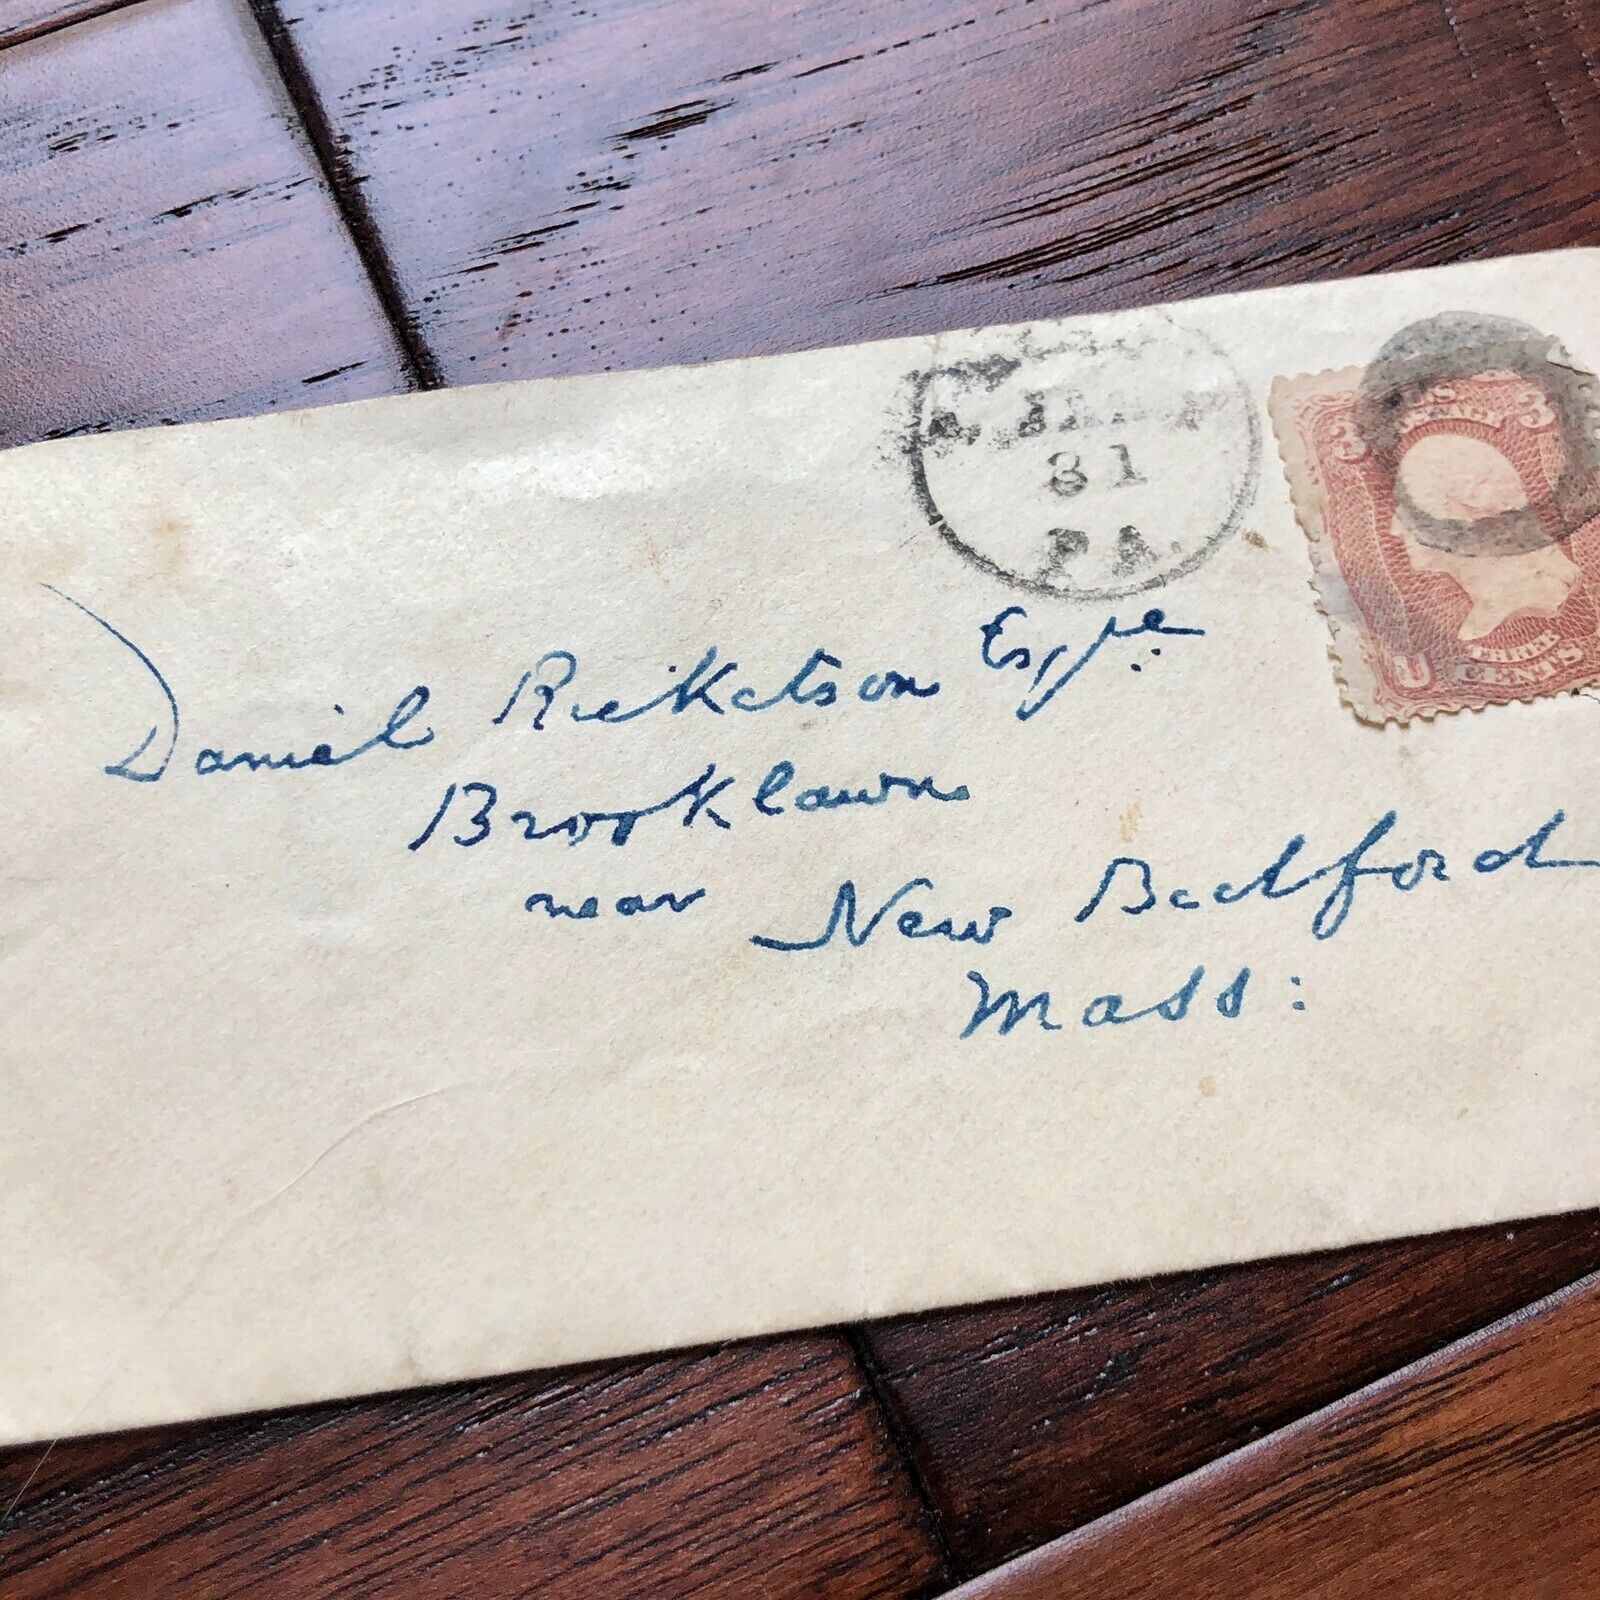 JAN
31
PA.
3 3
POSTAGE
U
THREE
CENTS
Daniel Ricketson Esqre
Brooklawn
near New Bedford
Mass: